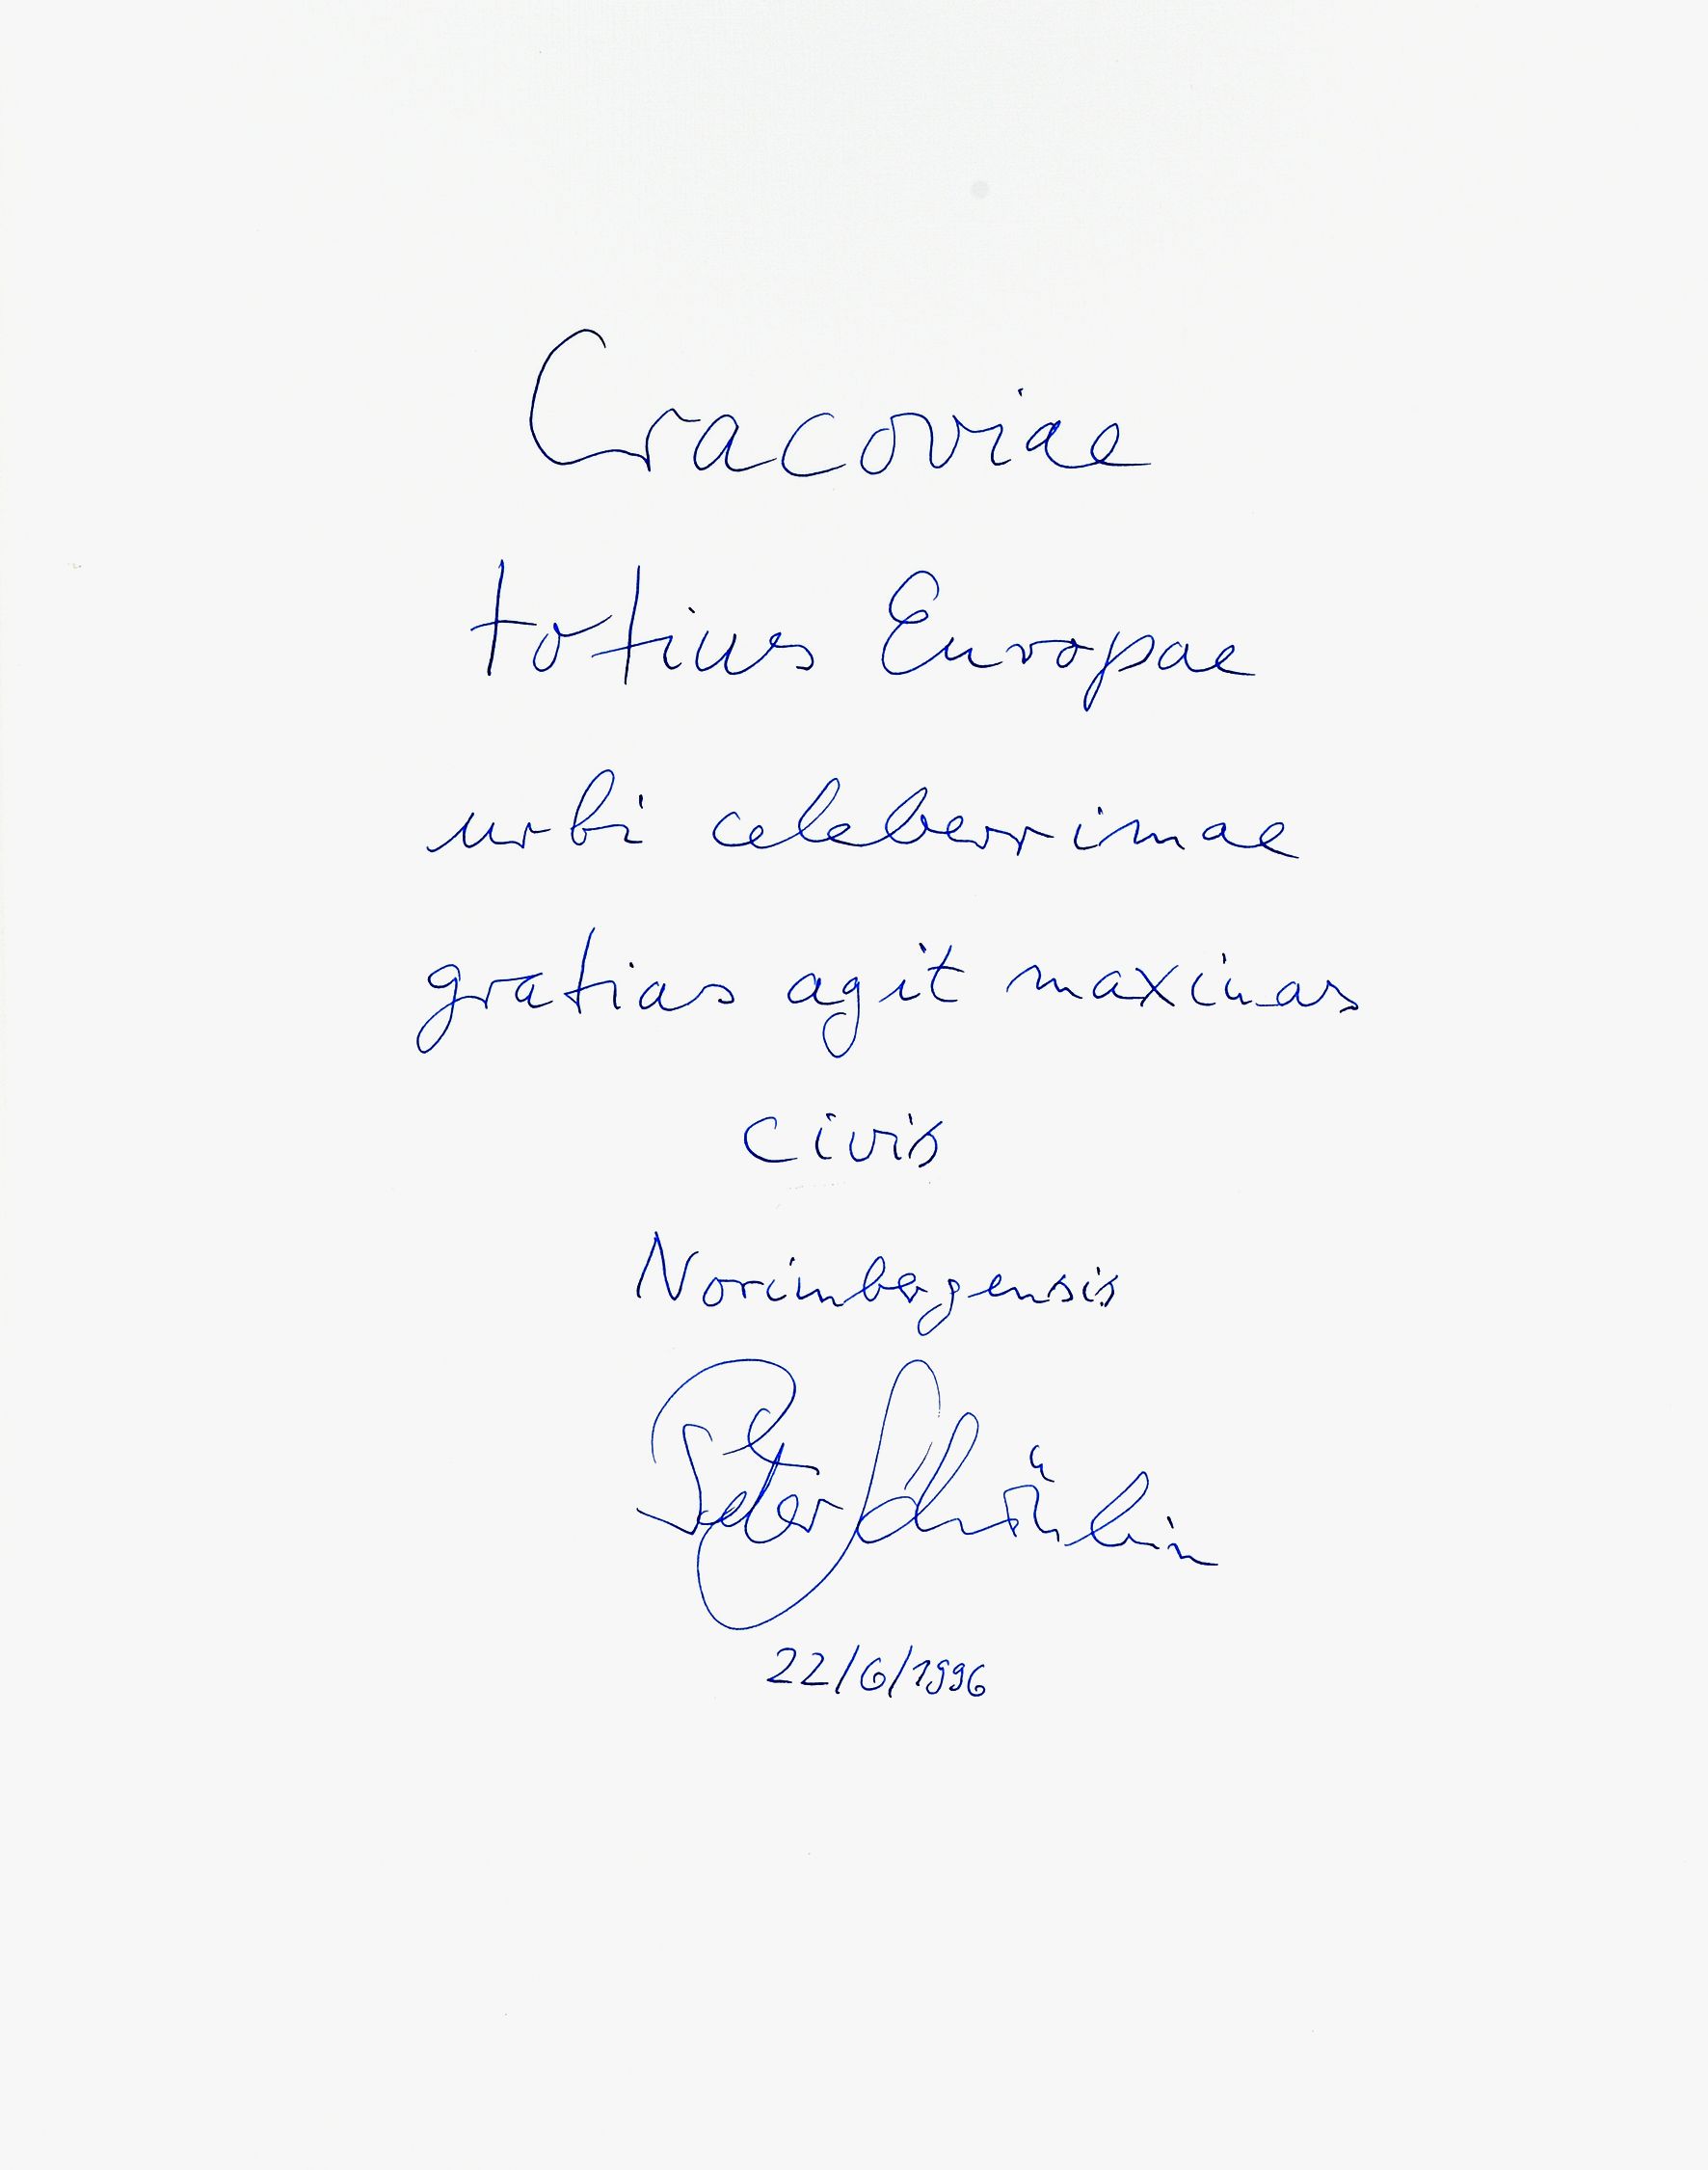 Cracoviae
totius Europae
urbi celeberrimae
gratias agit maximas
civis
Norimbergensis
Peter Schönlein
22/6/1996